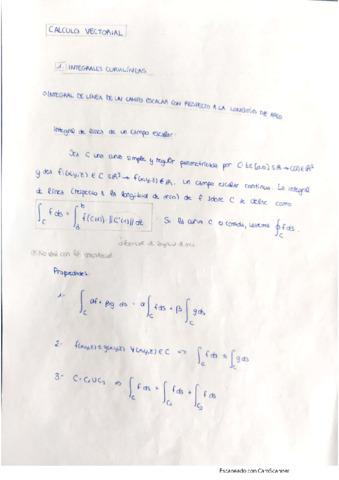 CALCULO VECTORIAL
1. INTEGRALES CURVILÍNEAS
INTEGRAL DE LÍNEA DE UN CAMPO ESCALAR CON RESPECTO A LA LONGITUD DE ARCO
Integral de línea de un campo escalar:
Sea C una curva simple y regular parametrizada por C: t∈[a,b] ⊆ ℝ → C(t) ∈ ℝ³
y sea f: (x,y,z) ∈ C ⊆ ℝ³ → f(x,y,z) ∈ ℝ, un campo escalar continuo. La integral
de línea (respecto a la longitud de arco) de f sobre C se define como
∫_C f ds = ∫_a^b f(C(t)) · ||C'(t)|| dt. Si la curva C es cerrada, ∮_C f ds
diferencial de longitud de arco
Propiedades:
1- ∫_C αf + βg ds = α ∫_C f ds + β ∫_C g ds
2- f(x,y,z) ≤ g(x,y,z) ∀(x,y,z) ∈ C ⇒ ∫_C f ds ≤ ∫_C g ds
3- C = C₁ ∪ C₂ ⇒ ∫_C f ds = ∫_C₁ f ds + ∫_C₂ f ds
Escaneado con CamScanner